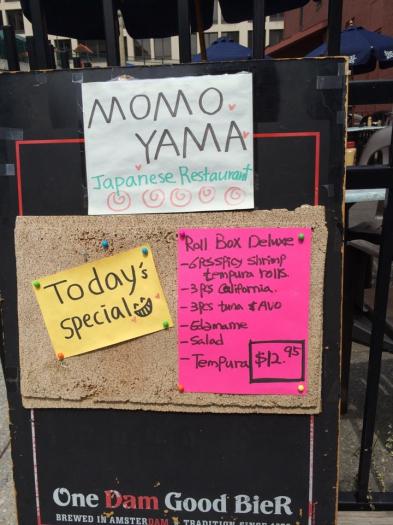 MOMO
YAMA
Japanese Restaurant
Today's
special
Roll Box Deluxe
-6pcs spicy shrimp
tempura rolls.
-3pcs California.
-3pcs tuna & AVO
-Edamame
-Salad
-Tempura $12.95
One Dam Good BieR
BREWED IN AMSTERDAM TRADITION SINCE